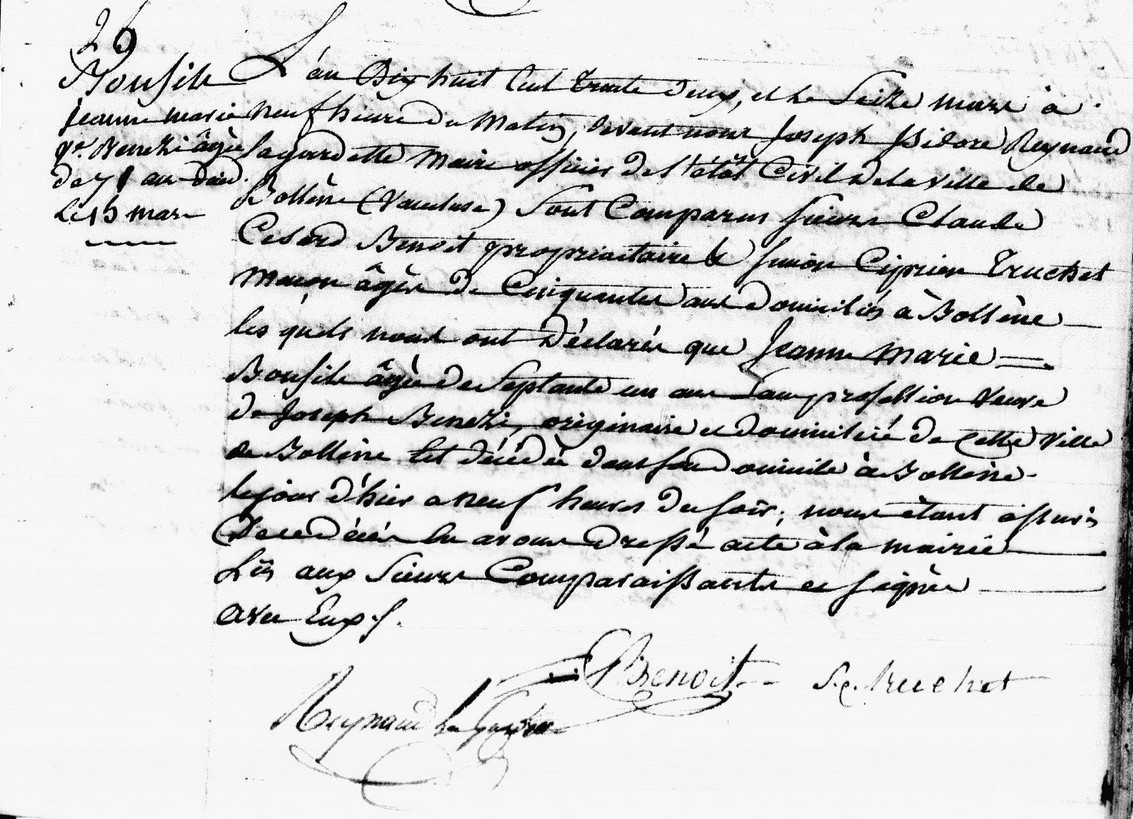 26
Bonfils
jeanne marie
ve. Benezi âgée
de 71 an Déd.
Le 15 mars
L'an Dix huit Cent trente deux, et le Seize mars à
neuf heure du Matin, devant nous Joseph Isidore Reynaud
Lagardette Maire officier de l'etât Civil de la ville de
Bollène (Vaucluse) Sont Comparus sieurs Claude
Cesard Benoit propriétaire & Simon Ciprien Truchet
Maçon âgés de Cinquante ans domiciliés à Bollène
les quels nous ont Déclarée que Jeanne Marie
Bonfils âgée de Septante un ans Sans profession veuve
de Joseph Benezi, originaire et domiciliée de cette ville
de Bollène Est décédée dans son domicile à Bollène
le jour d'hier a neuf heures du soir; nous étant assurés
De ce décés En avons dressé acte à la mairie
Lûs aux Sieurs Comparaissants et signée
avec Eux /.
Benoit S. C. truchet
Reynaud La Gardette